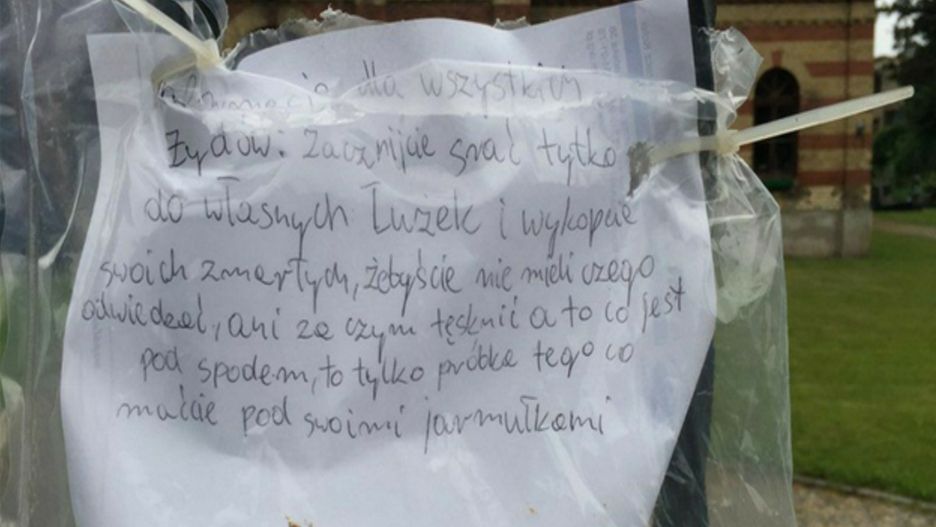 Informacja dla wszystkich
Żydów: Zacznijcie srać tylko
do własnych łużek i wykopcie
swoich zmarłych, żebyście nie mieli czego
odwiedzać, ani za czym tęsknić a to co jest
pod spodem, to tylko próbka tego co
macie pod swoimi jarmułkami